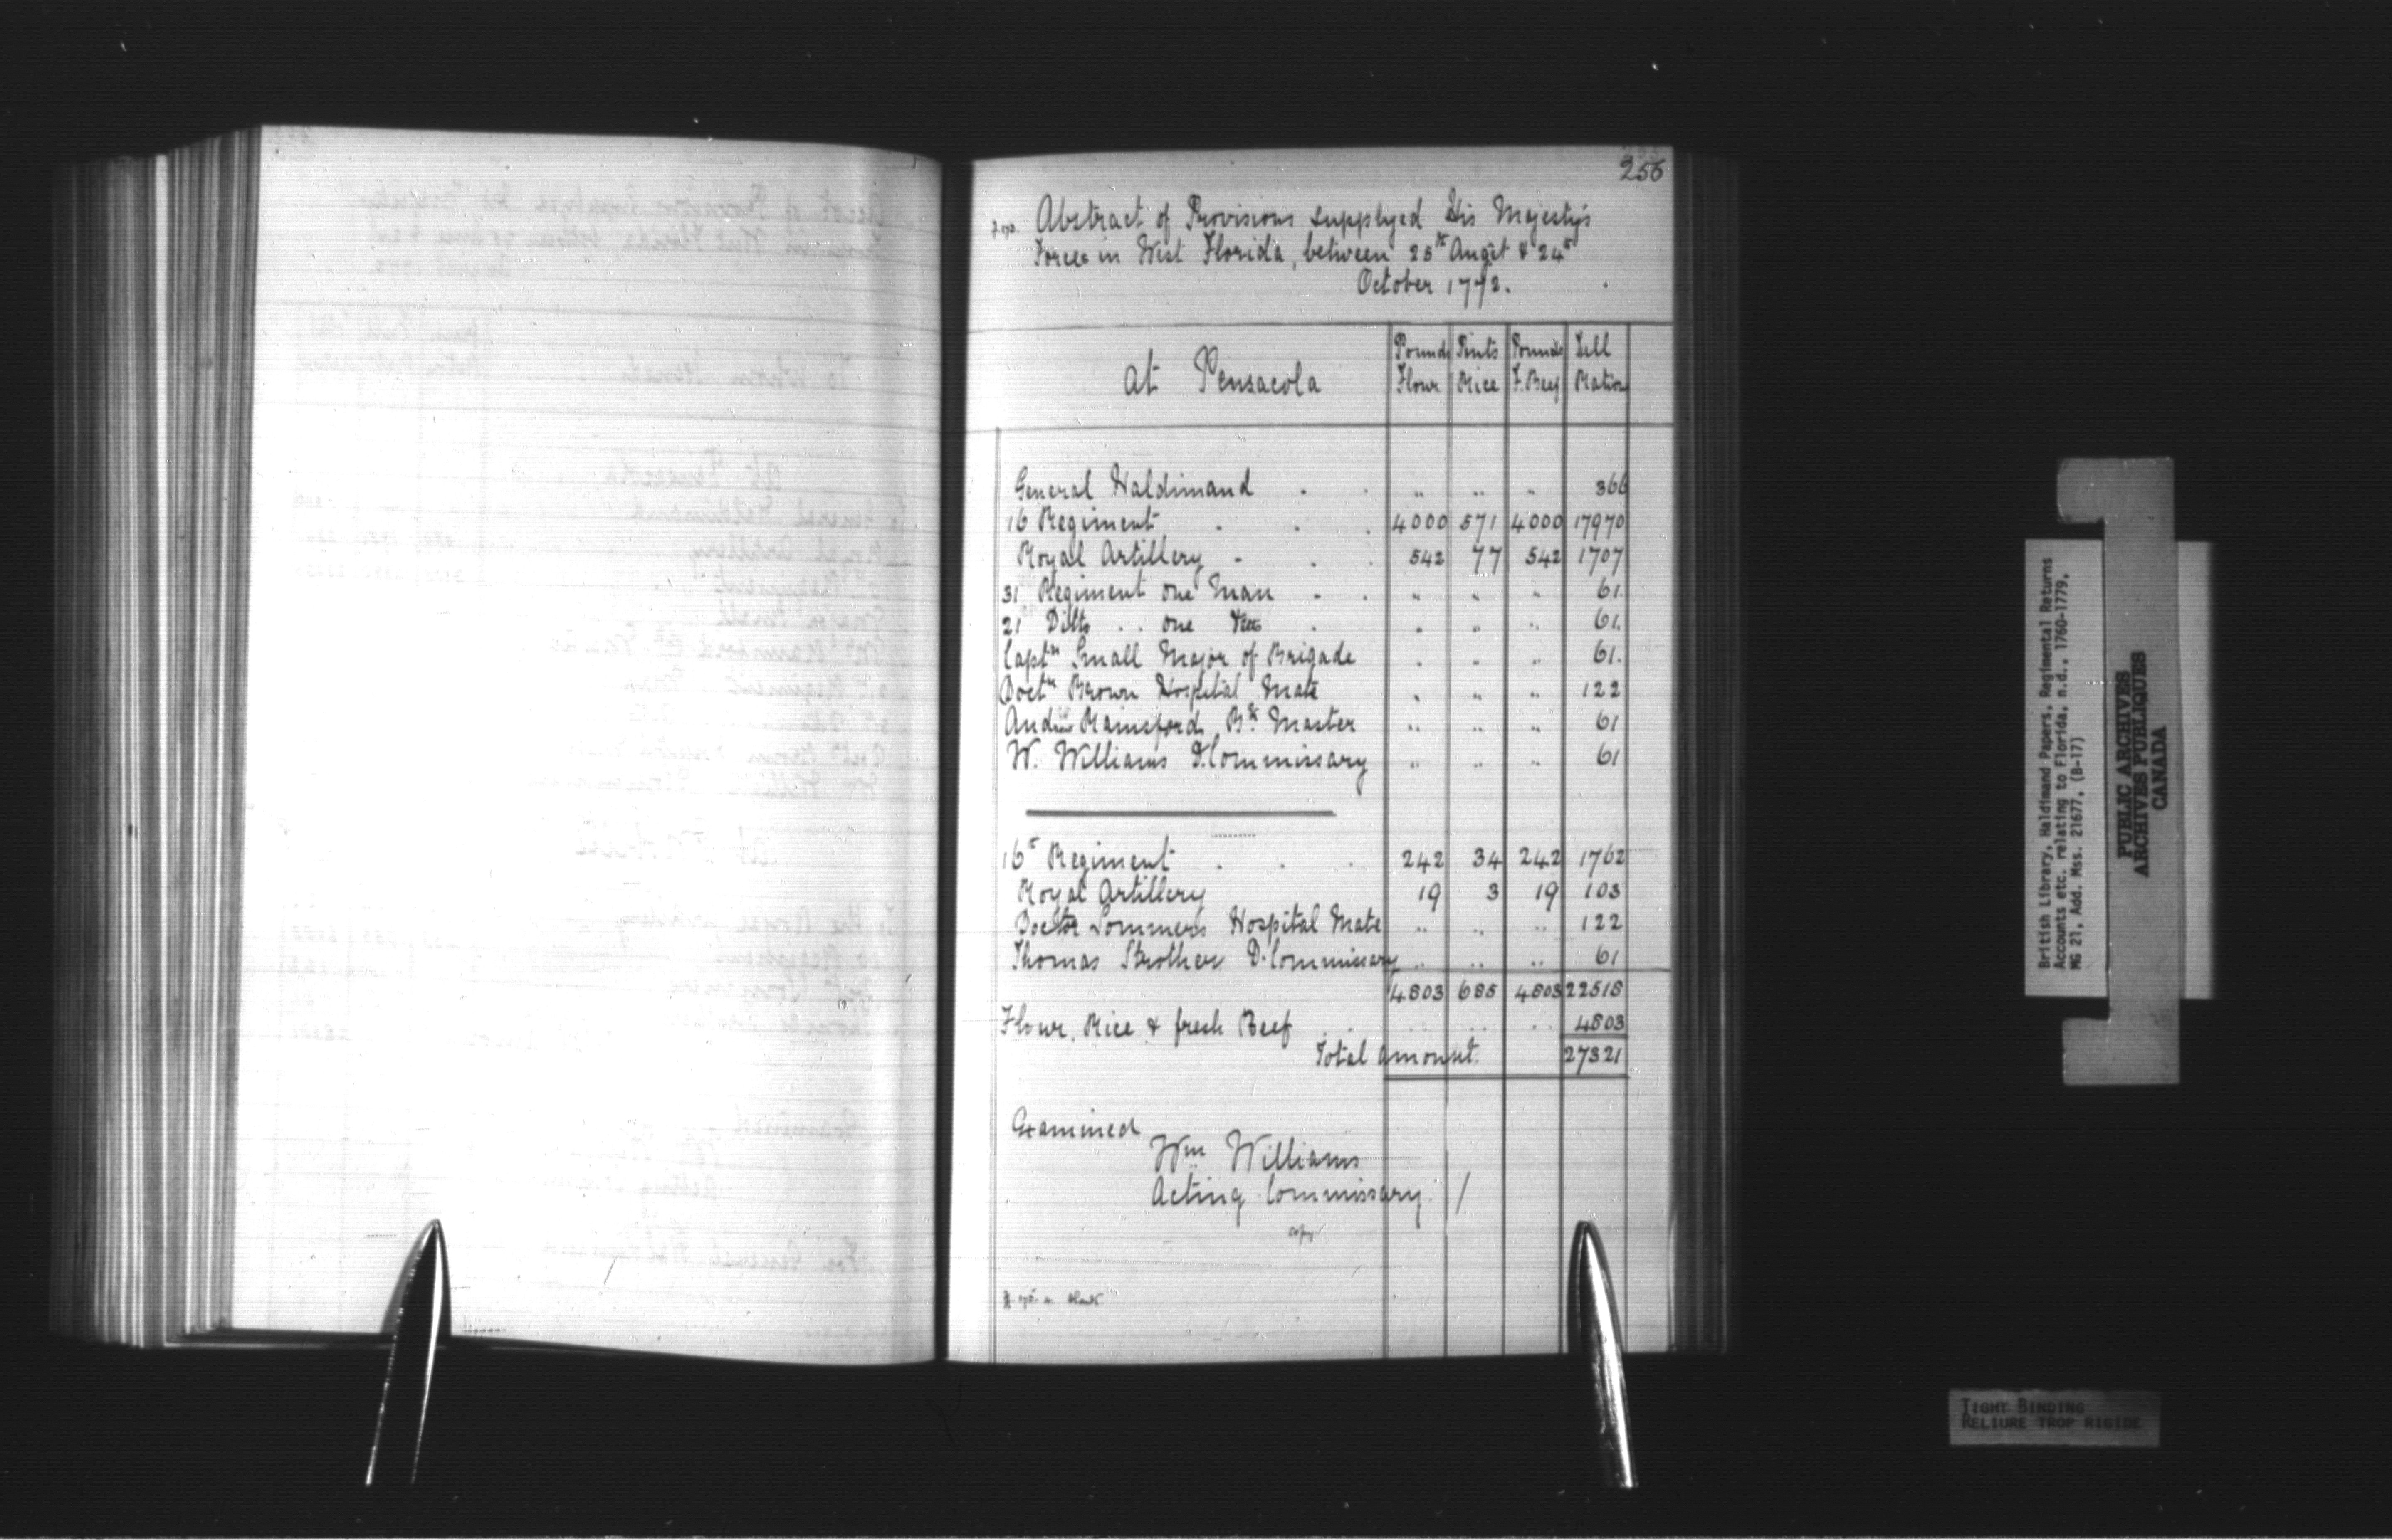 256
Abstract of Provisions supplyed His Majesty's
Forces in West Florida, between 25th Augst & 24th
October 1772.
At Pensacola
Pounds Flour
Pints Rice
Pounds F. Beef
Full Rations
General Haldimand . . " " " 366
16 Regiment . . . 4000 571 4000 17970
Royal Artillery . . . 542 77 542 1707
31 Regiment one Man . . " " " 61.
21 Ditto . . one . " " " 61.
Captn Small Major of Brigade " " " 61.
Doctr Brown Hospital Mate " " " 122
Rainsford Bk Master " " " 61
W. Williams D. Commissary " " " 61
16th Regiment . . . 242 34 242 1762
Royal Artillery 19 3 19 103
Doctor Sommers Hospital Mate " " " 122
Thomas Strother D. Commissary " " " 61
4803 685 4803 22518
Flour, Rice & fresh Beef . . " " " 4803
Total Amount. 27321
Examined
Wm Williams
Acting Commissary /
copy
British Library, Haldimand Papers, Regimental Returns
Accounts etc. relating to Florida, n.d., 1760-1779,
MG 21, Add. Mss. 21677, (B-17)
PUBLIC ARCHIVES
ARCHIVES PUBLIQUES
CANADA
TIGHT BINDING
RELIURE TROP RIGIDE